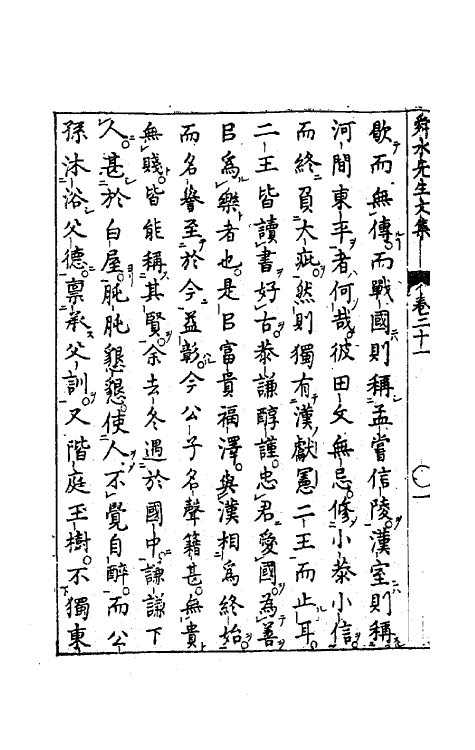 舜水先生文集 卷二十一 一
歇而無傳而戰國則稱孟嘗信陵漢室則稱
河間東平者何哉彼田文無忌修小恭小信
而終負大疵然則獨有漢獻憲二王而止耳
二王皆讀書好古恭謙醇謹忠君愛國為善
㠯爲樂者也是㠯富貴福澤與漢相爲終始
而名譽至於今益彰今公子名聲籍甚無貴
無賤皆能稱其賢余去冬遇於國中謙謙下
人甚於白屋肫肫懇懇使人不覺自醉而公
孫沐浴父德禀承父訓又階庭玉樹不獨東